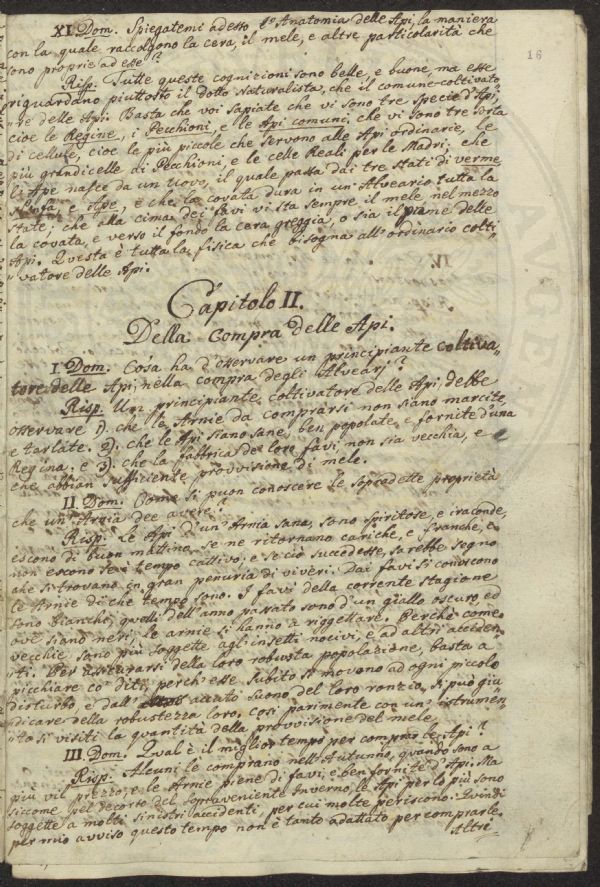 16
XI. Dom. Spiegatemi adesso l'Anatomia delle Api, la maniera
con la quale raccolgono la cera, il mele, e altre particolarità che
sono proprie ad esse?
Risp. Tutte queste cognizioni sono belle, e buone, ma esse
riguardano piuttosto il Dotto Naturalista, che il comune coltivato
re delle Api. Basta che voi sapiate che vi sono tre specie d'Api,
cioè le Regine, i Pecchioni, e le Api comuni, che vi sono tre sorta
di cellule, cioè le più piccole che servono alle Api ordinarie, le
più grandicelle ai Pecchioni, e le celle Reali per le Madri; che
l'Ape nasce da un Uovo, il quale passa dai tre stati di verme,
Ninfa, e Ape, e che la covata dura in un' Alveario tutta la
state; che alla cima dei favi vi sta sempre il mele, nel mezzo
la covata, e verso il fondo la cera greggia, o sia il pane delle
Api. Questa è tutta la fisica che bisogna all' ordinario colti
vatore delle Api.
Capitolo II.
Della Compra delle Api.
I. Dom. Cosa ha d'osservare un principiante coltiva
tore delle Api, nella compra degli Alvearj?
Risp. Un principiante coltivatore delle Api, debbe
osservare 1). che le Arnie da comprarsi non siano marcite,
e tarlate. 2). che le Api siano sane, ben popolate, e fornite d'una
Regina, e 3). che la fabbrica de' loro favi non sia vecchia, e
che abbian sufficiente provvisione di mele.
II. Dom. Come si puon conoscere le sopradette proprietà
che un' Arnia dee avere?
Risp. Le Api d'un' Arnia sana, sono spiritose, e iraconde,
escono di buon mattino, se ne ritornano cariche, e stanche, e
non escono se è tempo cattivo, e se ciò succedesse, sarebbe segno
che si trovano in gran penuria di viveri. Dai favi si conoscono
le Arnie di che tempo sono. I favi della corrente stagione
sono bianchi, quelli dell'anno passato sono d'un giallo oscuro, ed
ove siano neri, le arnie si hanno a riggettare. Perchè come
vecchie sono più soggette agl' insetti nocivi, e ad altri acciden
ti. Per assicurarsi della loro robusta popolazione, basta a
picchiare co' diti, perch' esse subito si movono ad ogni piccolo
disturbo, e dall' acuto suono del loro ronzio, si può giu
dicare della robustezza loro. Così parimente con un' istrumen
to si visiti la quantità della provvisione del mele.
III. Dom. Qual è il miglior tempo per comprar le Api?
Risp. Alcuni le comprano nell' Autunno, quando sono a
più vil prezzo, e le Arnie piene di favi, e ben fornite d'Api. Ma
siccome pel decorso del sopraveniente Inverno, le Api per lo più sono
soggette a molti sinistri accidenti, per cui molte periscono: Quindi
per mio avviso questo tempo non è tanto adattato per comprarle.
Altre